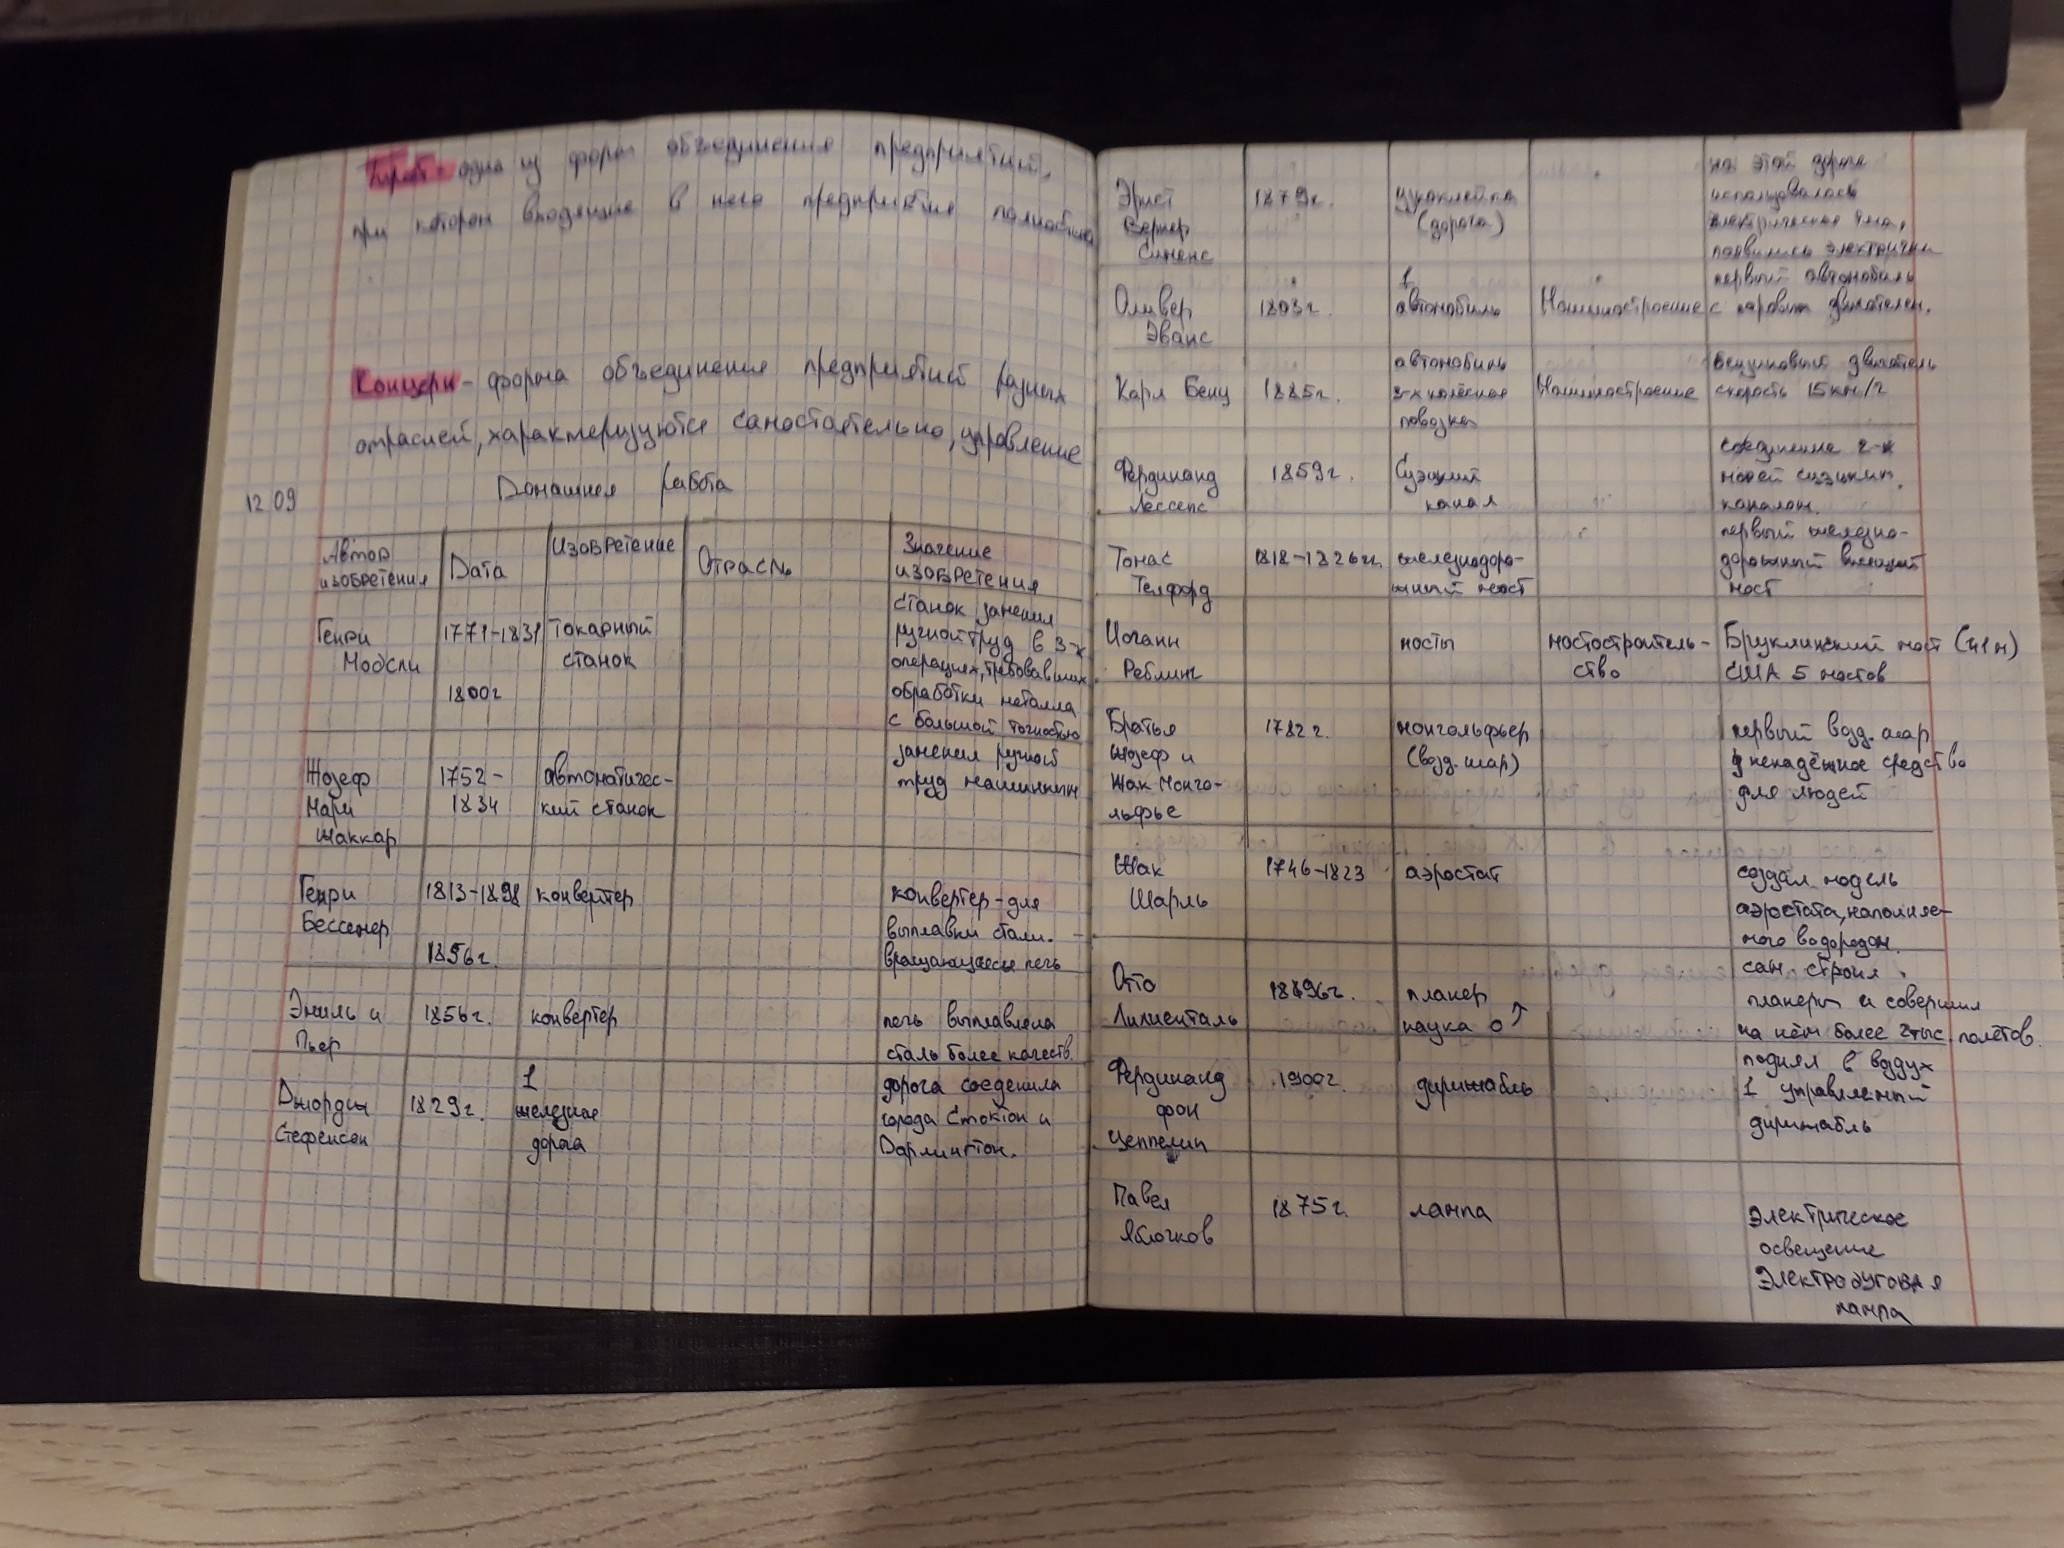 Трест - одна из форм объединения предприятий,
при котором входящие в него предприятия полностью
Концерн - форма объединения предприятий разных
отраслей, характеризуются самостоятельно, управление
12.09 Домашняя работа
Автор изобретения Дата Изобретение Отрасль Значение изобретения
Генри Модсли 1771-1831 1800г Токарный станок станок заменил
ручной труд в 3-х
операциях, требовавших
обработки металла
с большой точностью
Жозеф Мари Жаккар 1752-1834 автоматичес-
кий станок заменил ручной
труд машинным
Генри Бессемер 1813-1898 1856г. конвертер конвертер-для
выплавки стали.
вращающаяся печь
Эмиль и Пьер 1856г. конвертер печь выплавляла
сталь более качеств.
Джордж Стефенсон 1829г. 1 железная дорога дорога соеденила
города Стоктон и
Дарлингтон.
Эрнст
Вернер
Сименс 1879г. (дорога) на этой дороге
использовалась
электрическая тяга,
появились электрички
Оливер
Эванс 1803г. 1
автомобиль Машиностроение первый автомобиль
с паровым двигателем.
Карл Бенц 1885г. автомобиль
3-х колёсная
повозка Машиностроение бензиновый двигатель
скорость 15км/г
Фердинанд
Лессепс 1859г. Суэцкий
канал соединение 2-х
морей суэцким
каналом.
Томас
Телфорд 1818-1826гг. железнодоро-
жный мост первый железно-
дорожный висящий
мост
Иоганн
Реблинг мосты мостостроитель-
ство Бруклинский мост (41м)
США 5 мостов
Братья
Жозеф и
Жак Монго-
льфье 1782г. монгольфьер
(возд. шар) первый возд. шар
ненадёжное средство
для людей
Жак
Шарль 1746-1823 аэростат создал модель
аэростата, наполняе-
мого водородом.
Отто
Лилиенталь 1896г. планер
наука о ↑ сам строил
планеры и совершил
на нём более 2тыс. полётов.
Фердинанд
фон
Цеппелин 1900г. дирижабль поднял в воздух
1 управляемый
дирижабль
Павел
Яблочков 1875г. лампа электрическое
освещение
Электродуговая
лампа